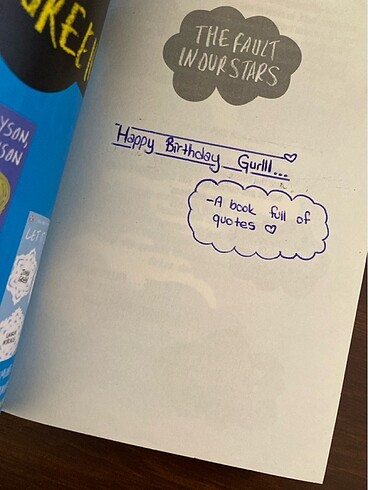 GREEN
YSON,
NSON
LET I
THE FAULT
IN OUR STARS
Happy Birthday Gurlll...♡
-A book full of
quotes ♡